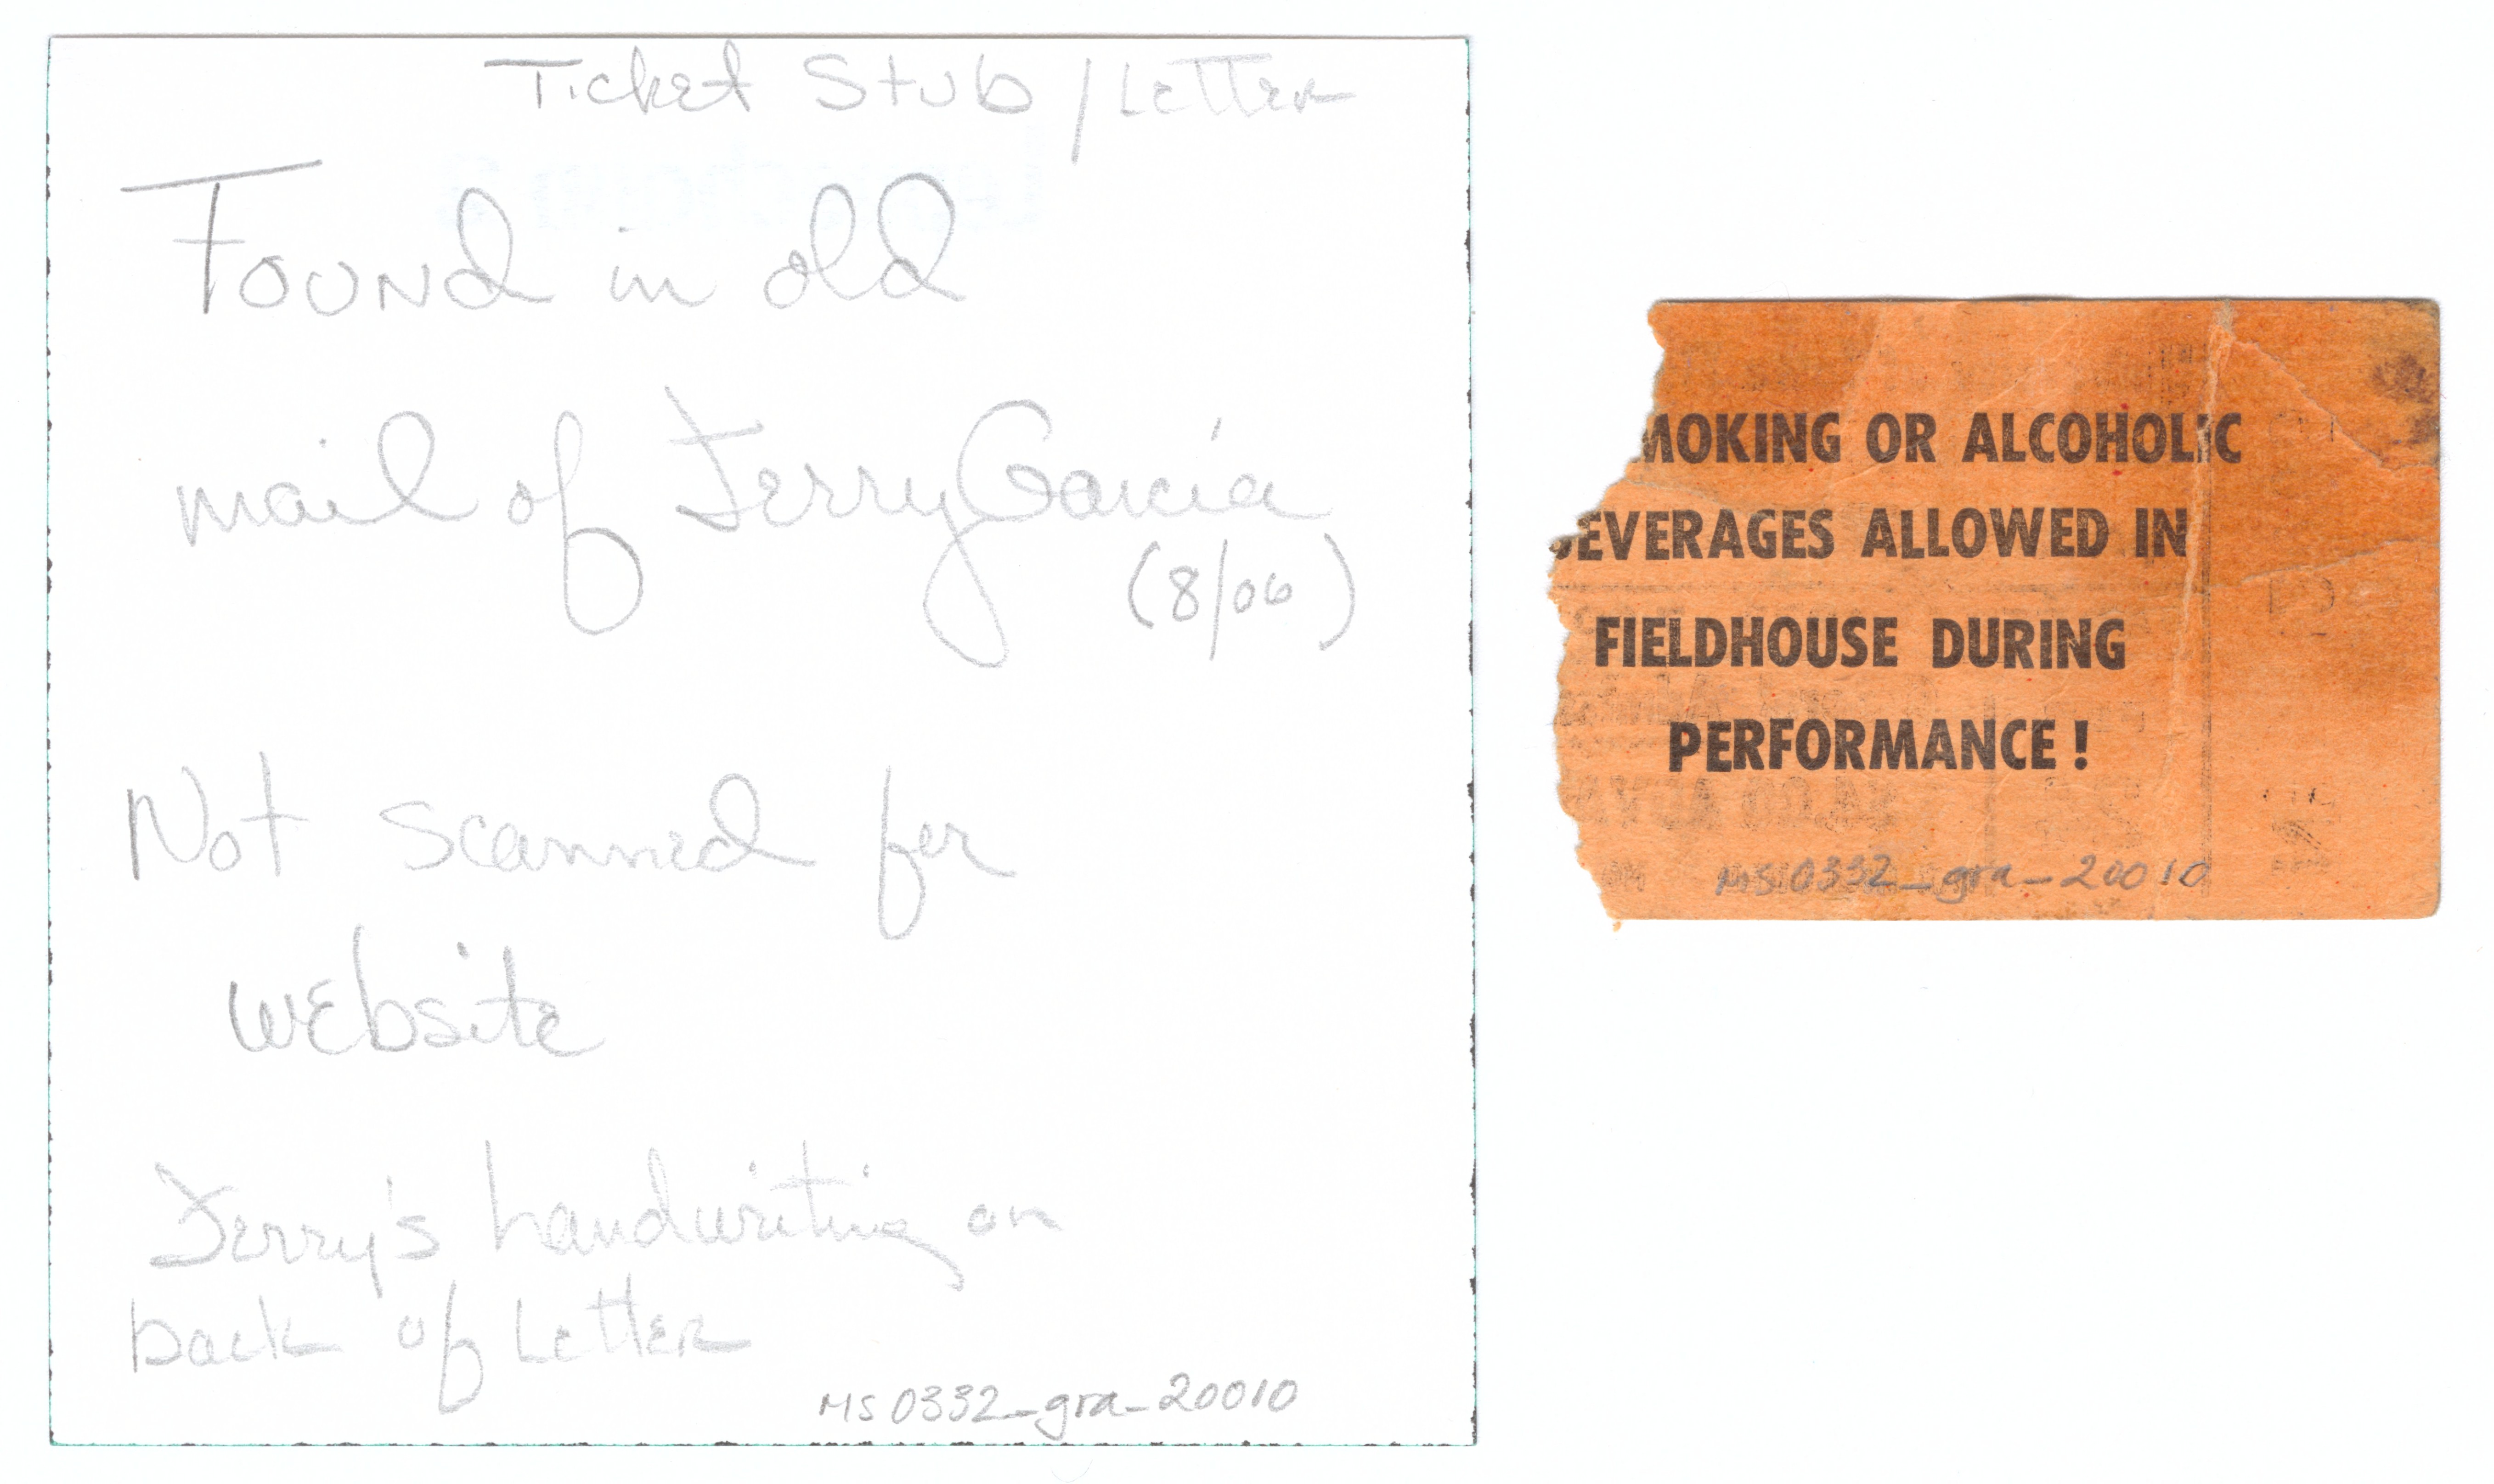 Ticket Stub / Letter
Found in old
mail of Jerry Garcia
(8/06)
Not scanned for
website
Jerry's handwriting on
back of Letter
MS0332_gra_20010
MOKING OR ALCOHOLIC
EVERAGES ALLOWED IN
FIELDHOUSE DURING
PERFORMANCE!
MS0332_gra_20010